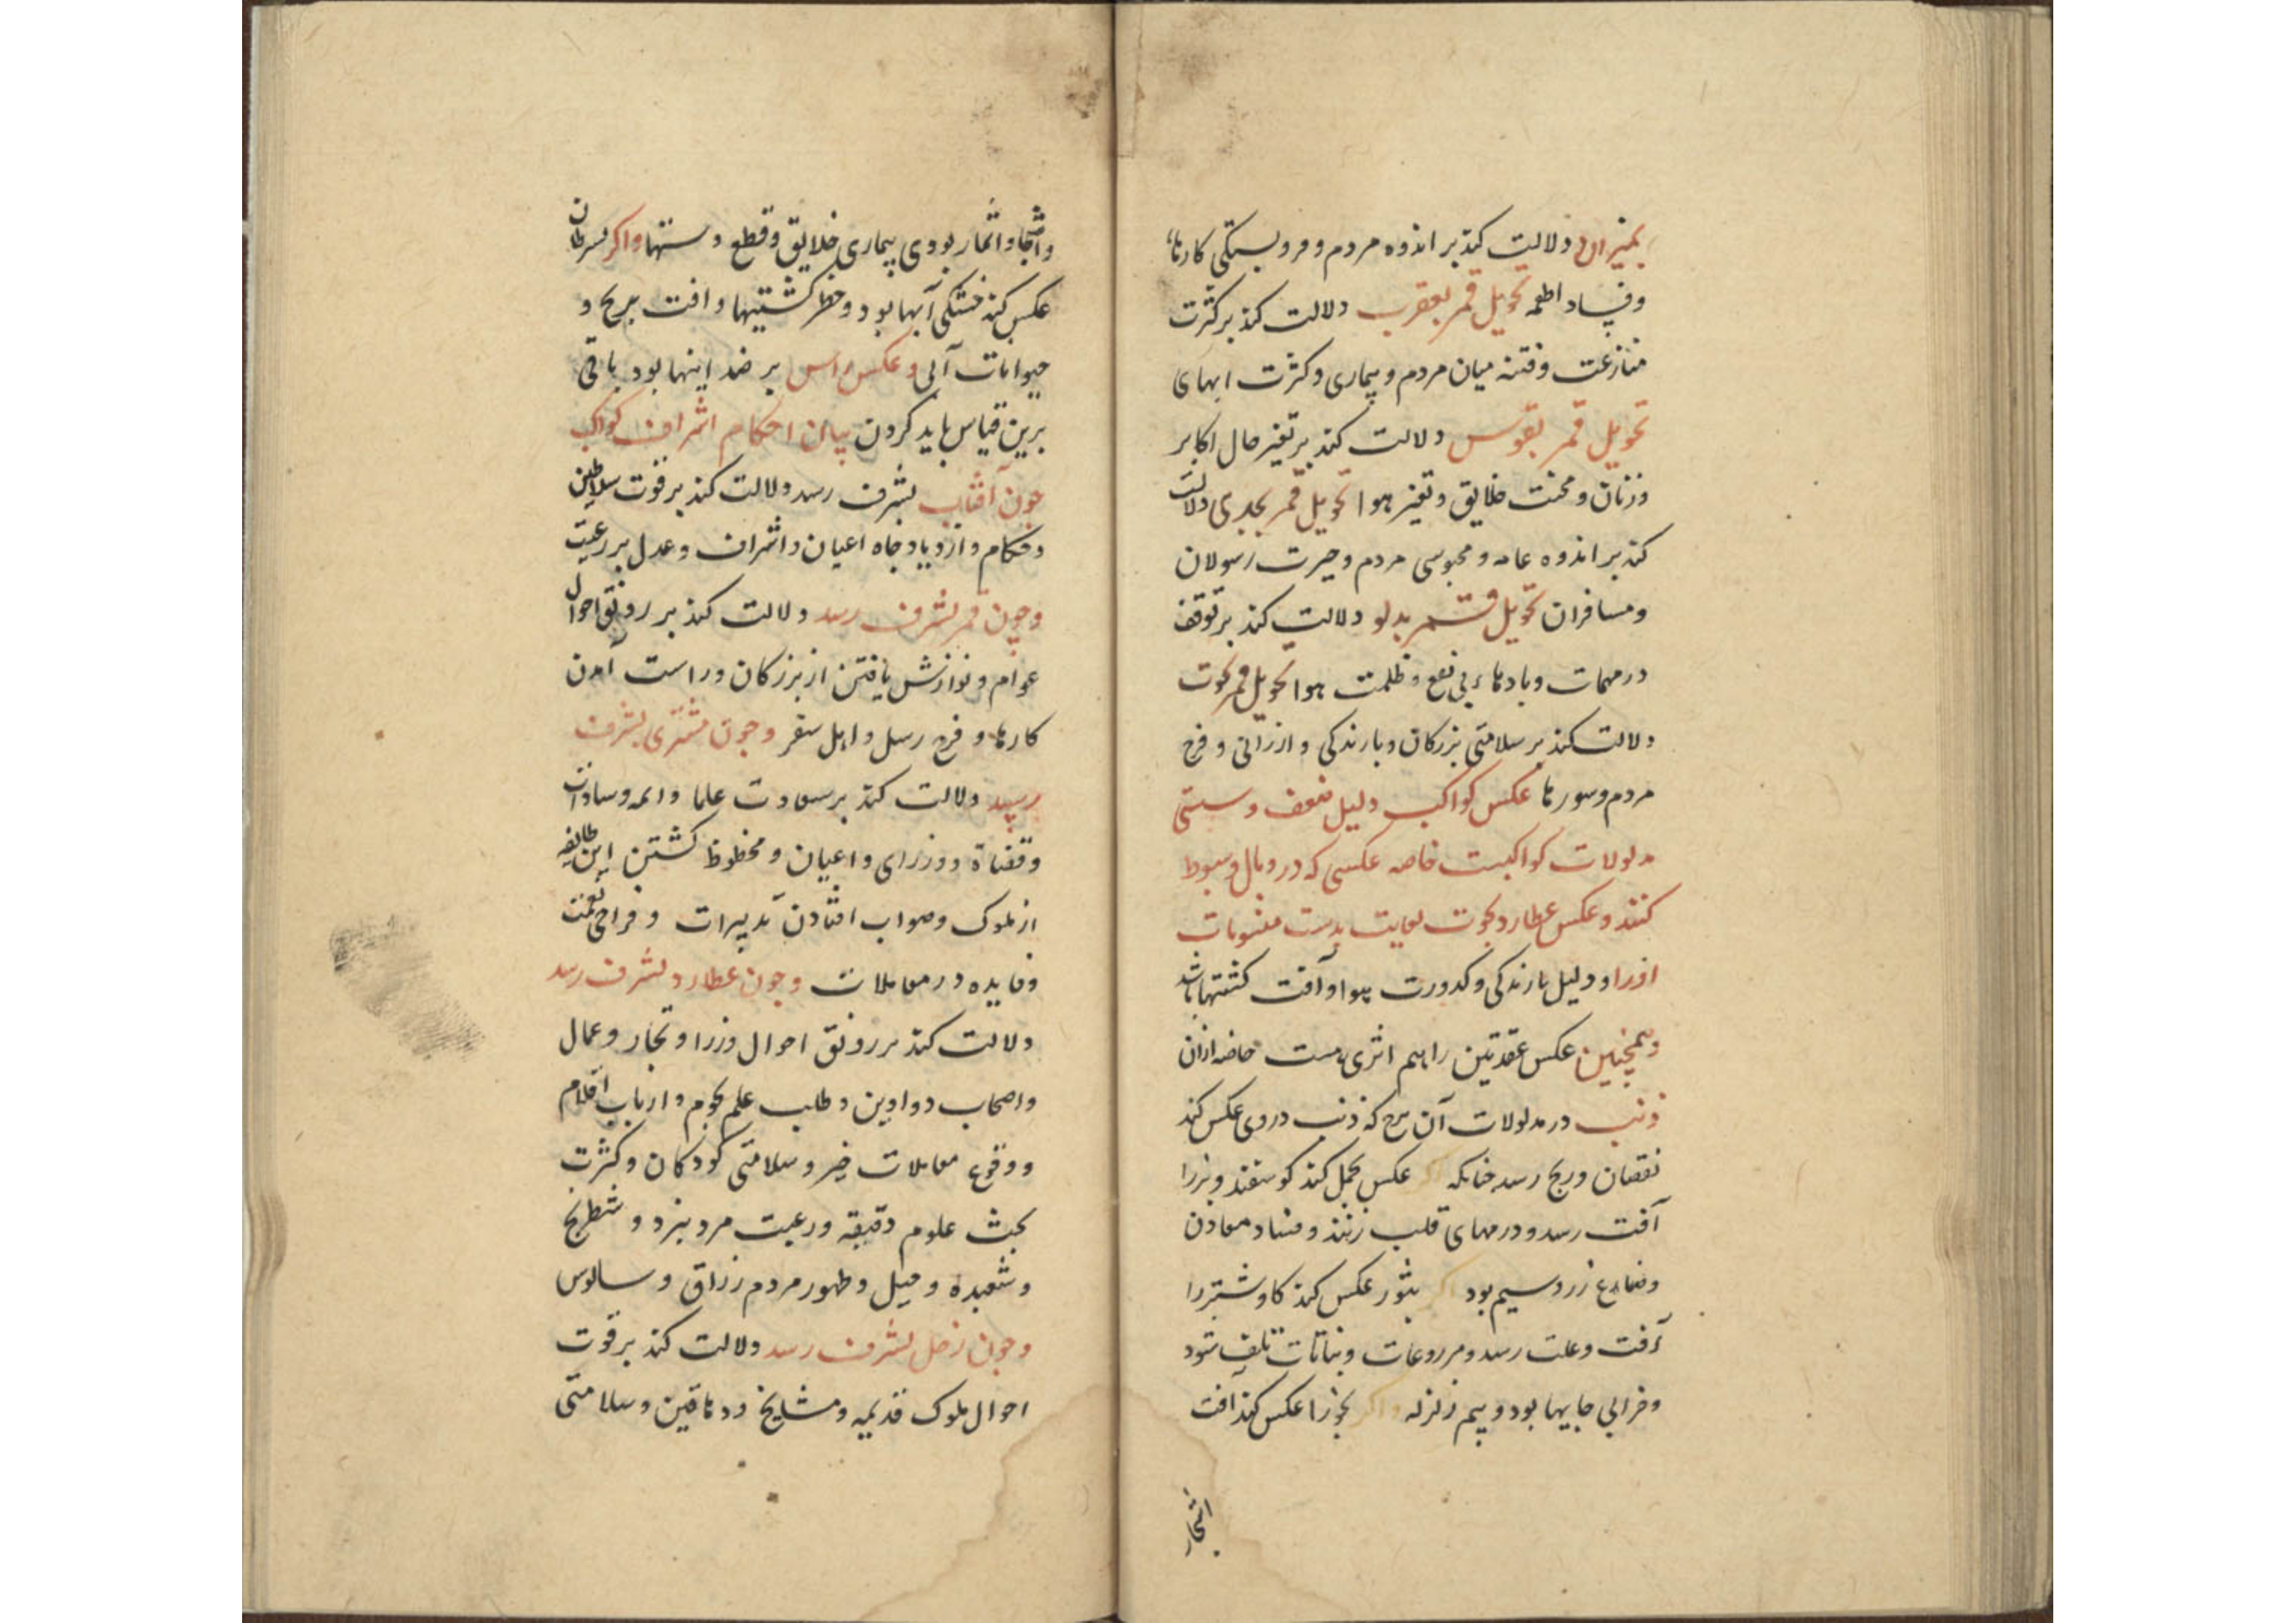 بمیزان دلالت کند بر اندوه مردم و فروبستکی کارها
و فساد اطعمه تحویل قمر بعقرب دلالت کند بر کثرت
منازعت و فتنه میان مردم و بیماری و کثرت ابهای
تحویل قمر بقوس دلالت کند بر تغیر حال اکابر
و زنان و محنت خلایق و تغیر هوا تحویل قمر بجدی دلالت
کند بر اندوه عامه و محبوسی مردم و حیرت رسولان
و مسافران تحویل قمر بدلو دلالت کند بر توقف
در مهمات و بادهاء بی نفع و ظلمت هوا تحویل قمر بحوت
دلالت کند بر سلامتی بزرکان و بارندکی و ارزانی و فرح
مردم و سورها عکس کواکب دلیل ضعف و سستی
مدلولات کواکبست خاصه عکسی که در وبال و هبوط
کنند و عکس عطارد بحوت بغایت بدست منسوبات
اورا و دلیل بارندکی و کدورت هوا و آفت کشتیها باشد
و همچنین عکس عقدتین را هم اثری هست خاصه ازان
ذنب در مدلولات آن برج که ذنب در وی عکس کند
نقصان و رنج رسد جنانکه اکر عکس بحمل کند کوسفند و بز را
آفت رسد و درمهای قلب زنند و فساد معادن
و ضایع زر و سیم بود اکر بثور عکس کند کاو و شتر را
آفت و علت رسد و مزروعات و نباتات تلف شود
و خرابی جایها بود و بیم زلزله و اکر بجوزا عکس کند آفت
اشجار
و اشجار و اثمار بود و بیماری خلایق و قطع دستها و اکر بسرطان
عکس کند خشکی آبها بود و خطر کشتیها و افت برنج و
حیوانات آبی و عکس راس بر ضد اینها بود باقی
برین قیاس باید کردن بیان احکام اشراف کواکب
جون آفتاب بشرف رسد دلالت کند بر قوت سلاطین
و حکام و ازدیاد جاه اعیان و اشراف و عدل بر رعیت
و جون قمر بشرف رسد دلالت کند بر رونق احوال
عوام و نوازش یافتن از بزرکان و راست آمدن
کارها و فرح رسل و اهل سفر و جون مشتری بشرف
برسد دلالت کند بر سعادت علما و ائمه و سادات
و قضاة و وزرای و اعیان و محظوظ کشتن این طایفه
از ملوک و صواب افتادن تدبیرات و فراخی نعمت
و فایده در معاملات و جون عطارد بشرف رسد
دلالت کند بر رونق احوال وزرا و تجار و عمال
و اصحاب دواوین و طلب علم نجوم و ارباب اقلام
و وقوع معاملات خیر و سلامتی کودکان و کثرت
بحث علوم دقیقه و رغبت مرد بنرد و شطرنج
و شعبده و حیل و ظهور مردم زراق و سالوس
و جون زحل بشرف رسد دلالت کند بر قوت
احوال ملوک قدیمه و مشایخ و دهاقین و سلامتی